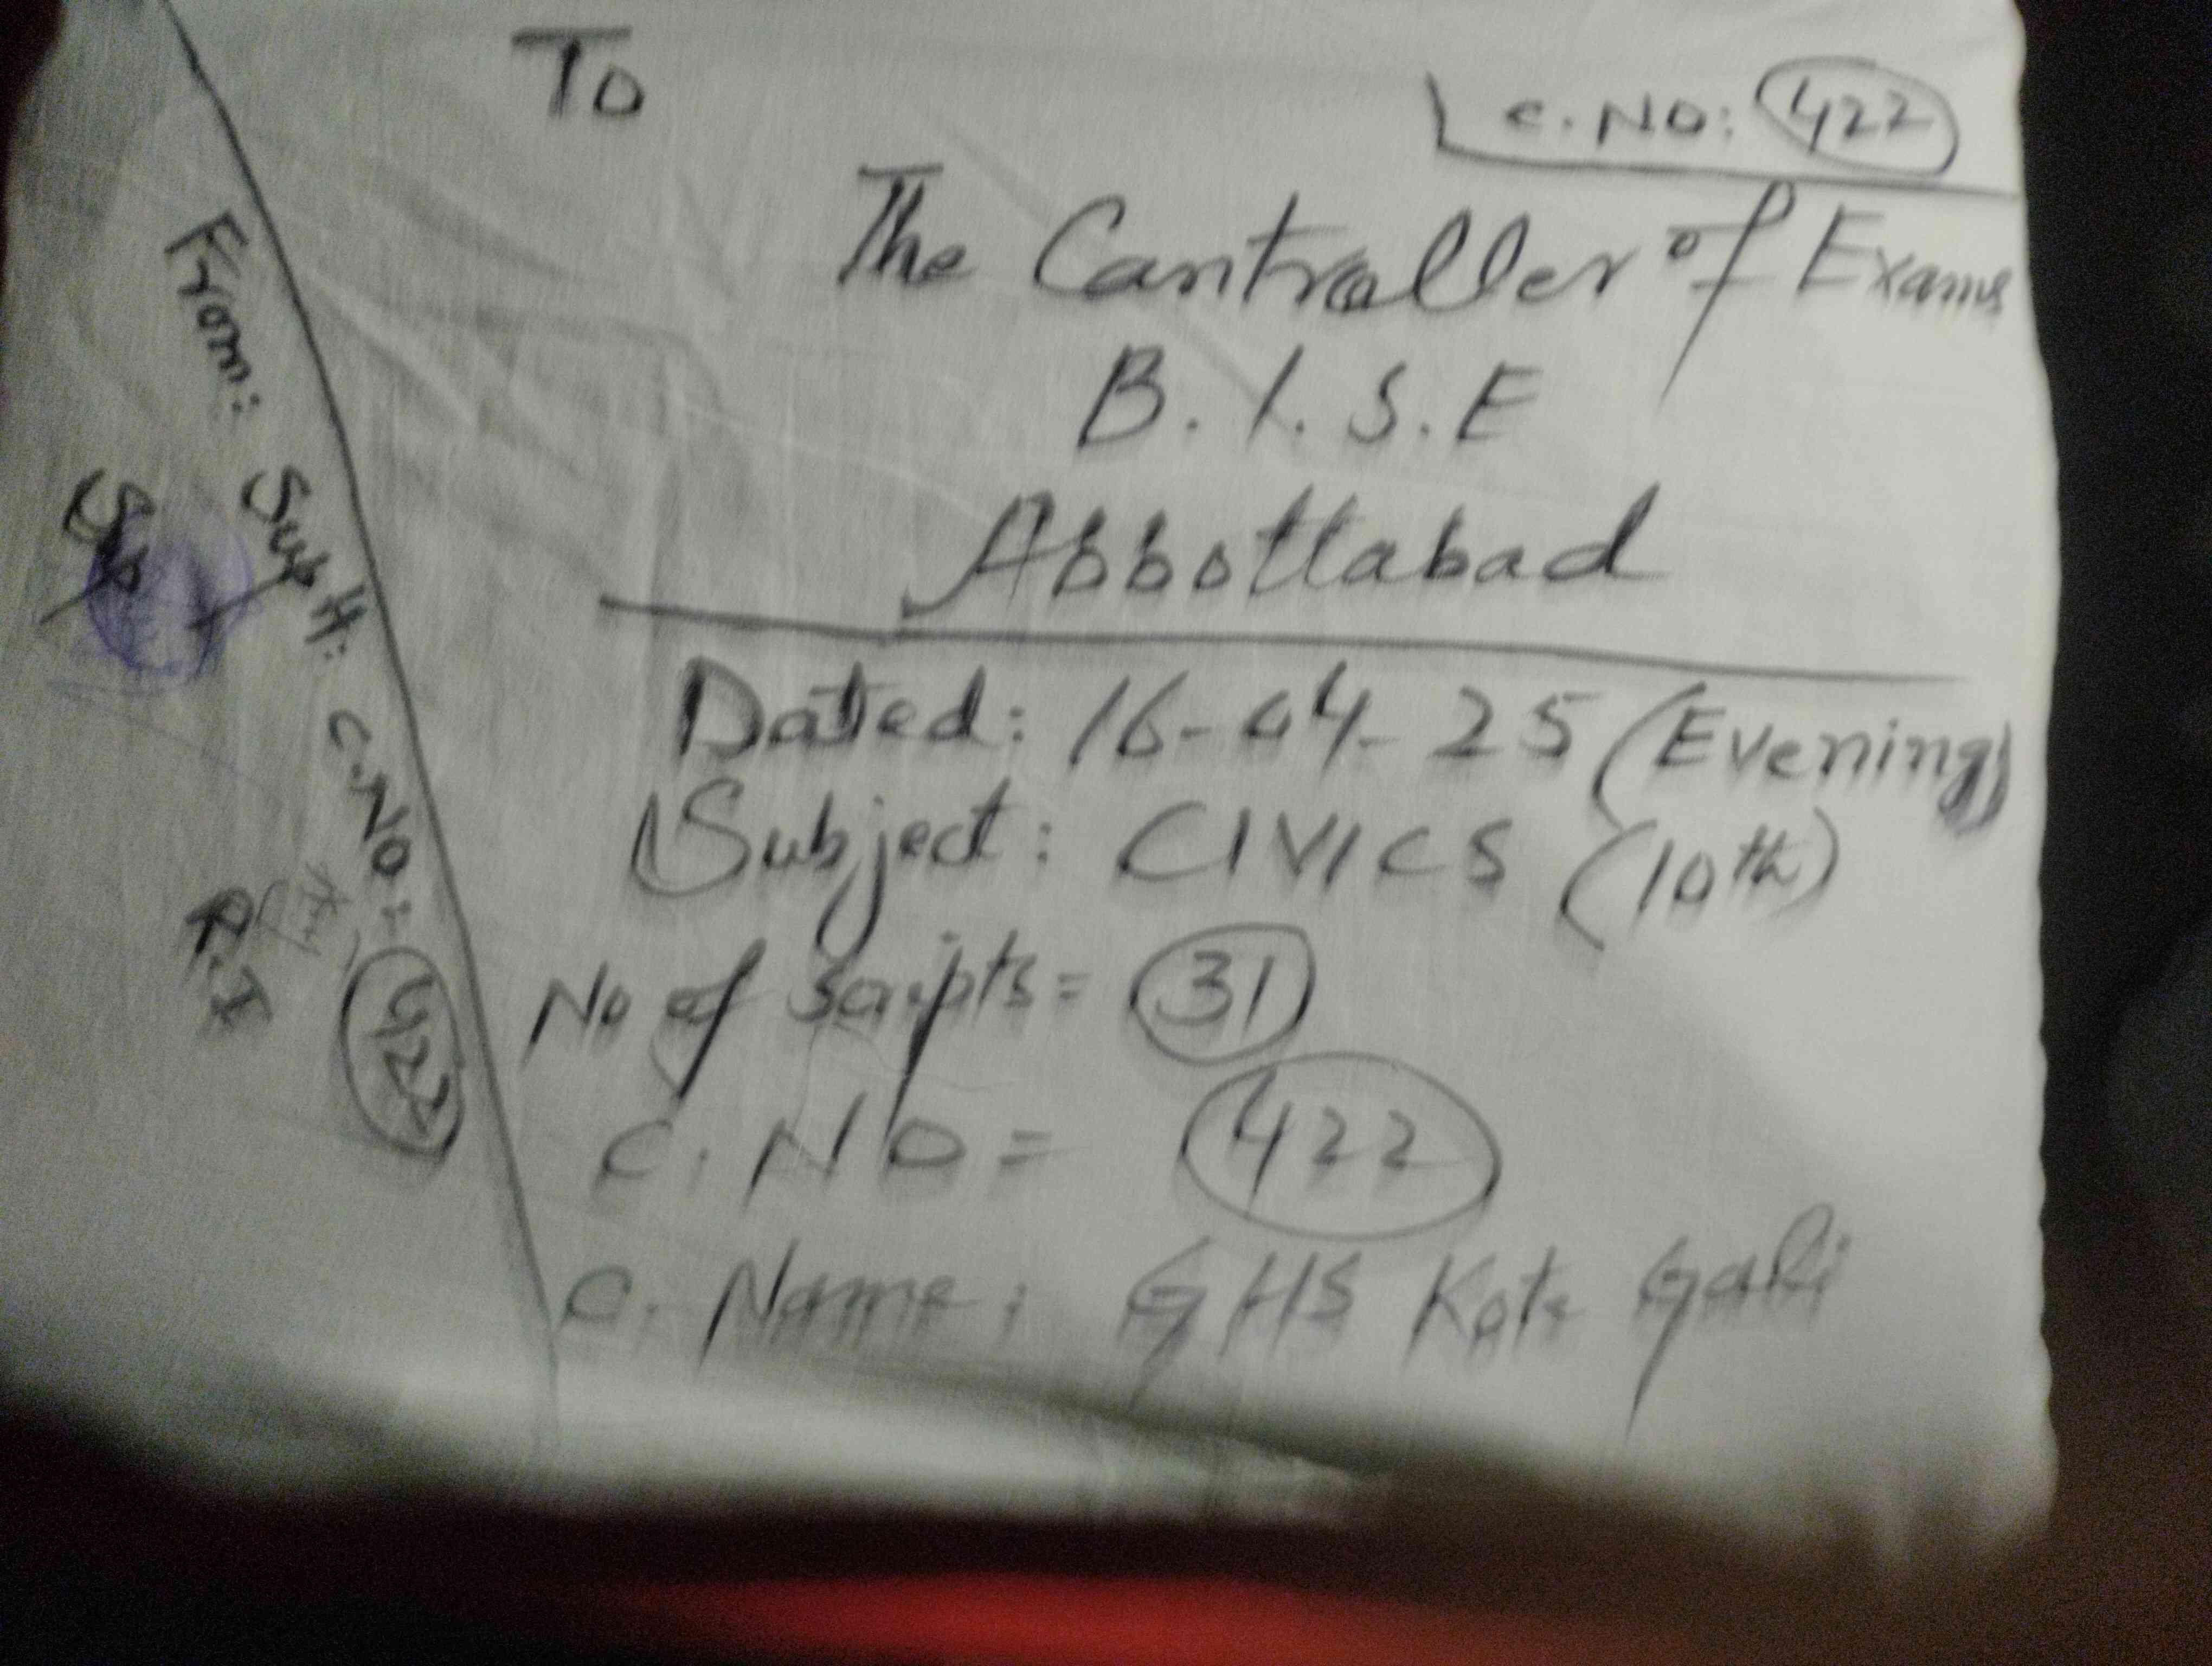 To
C. NO: 422
The Controller of Exams
B. I. S. E
Abbottabad
Dated: 16-04-25 (Evening)
Subject: CIVICS (10th)
No of scripts = 31
C. NO = 422
C. Name: GHS Kote Gali
From: Suptt: C.NO: 422
R.I